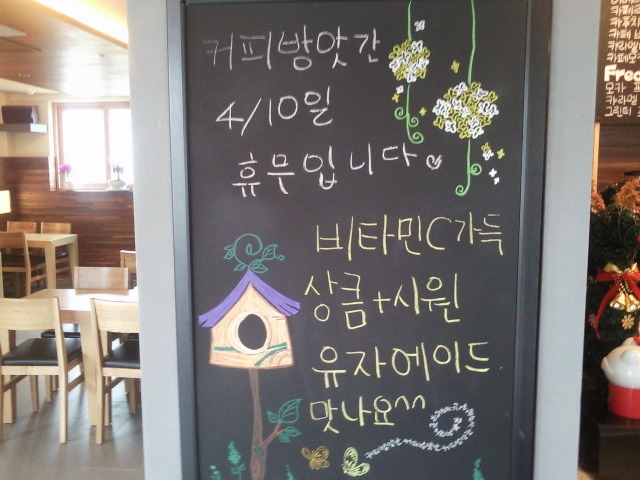 커피방앗간
4/10일
휴무입니다
비타민C가득
상큼+시원
유자에이드
맛나요^^